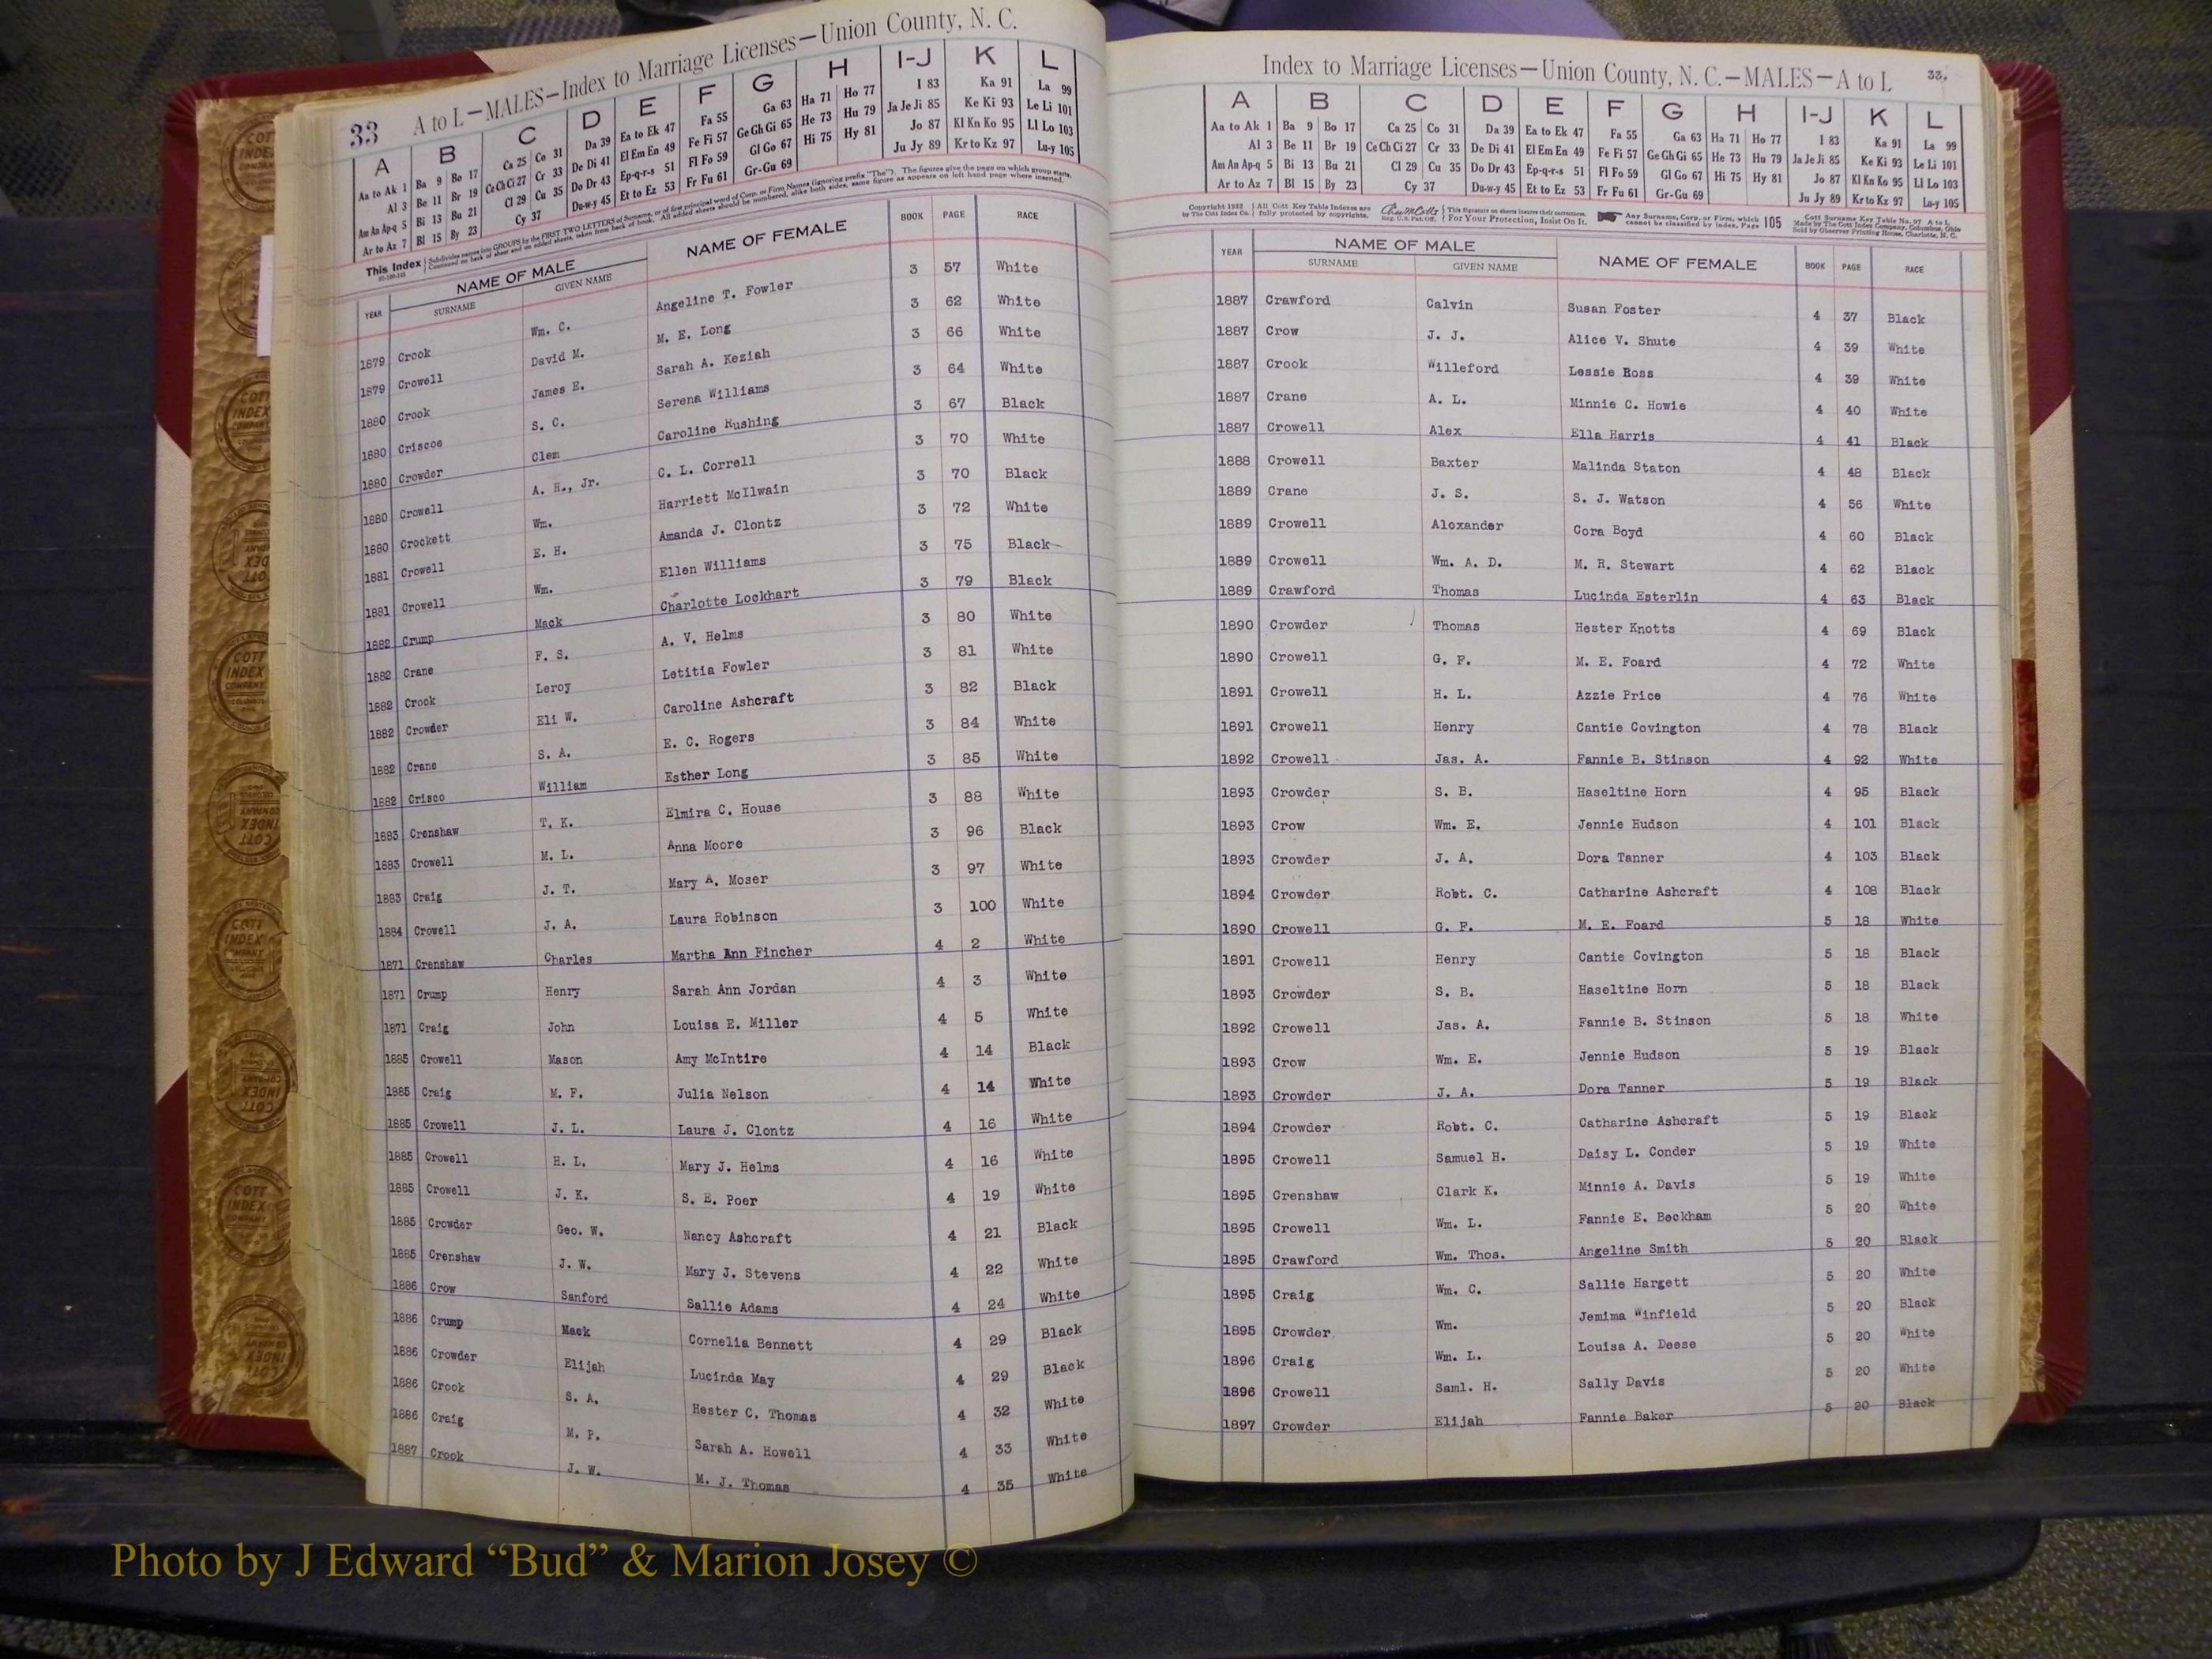 33 A to L—MALES—Index to Marriage Licenses—Union County, N. C.
A B C D E F G H I-J K L
Aa to Ak 1 Ba 9 Bo 17 Ca 25 Co 31 Da 39 Ea to Ek 47 Fa 55 Ga 63 Ha 71 Ho 77 I 83 Ka 91 La 99
Al 3 Be 11 Br 19 Ce Ch Ci 27 Cr 33 De Di 41 El Em En 49 Fe Fi 57 Ge Gh Gi 65 He 73 Hu 79 Ja Je Ji 85 Ke Ki 93 Le Li 101
Am An Ap-q 5 Bi 13 Bu 21 Cl 29 Cu 35 Do Dr 43 Ep-q-r-s 51 Fl Fo 59 Gl Go 67 Hi 75 Hy 81 Jo 87 Kl Kn Ko 95 Ll Lo 103
Ar to Az 7 Bl 15 By 23 Cy 37 Du-w-y 45 Et to Ez 53 Fr Fu 61 Gr-Gu 69 Ju Jy 89 Kr to Kz 97 Lu-y 105
This Index Subdivides names into GROUPS by the FIRST TWO LETTERS of Surname, or of first principal word of Corp. or Firm Names (ignoring prefix "The"). The figures give the page on which group starts.
Continued on back of sheet and on added sheets, taken from back of book. All added sheets should be numbered, alike both sides, same figure as appears on left hand page where inserted.
YEAR NAME OF MALE NAME OF FEMALE BOOK PAGE RACE
SURNAME GIVEN NAME
1879 Crook Wm. C. Angeline T. Fowler 3 57 White
1879 Crowell David M. M. E. Long 3 62 White
1880 Crook James E. Sarah A. Keziah 3 66 White
1880 Criscoe S. C. Serena Williams 3 64 White
1880 Crowder Clem Caroline Rushing 3 67 Black
1880 Crowell A. H., Jr. C. L. Correll 3 70 White
1880 Crockett Wm. Harriett McIlwain 3 70 Black
1881 Crowell E. H. Amanda J. Clontz 3 72 White
1881 Crowell Wm. Ellen Williams 3 75 Black
1882 Crump Mack Charlotte Lockhart 3 79 Black
1882 Crane F. S. A. V. Helms 3 80 White
1882 Crook Leroy Letitia Fowler 3 81 White
1882 Crowder Eli W. Caroline Ashcraft 3 82 Black
1882 Crane S. A. E. C. Rogers 3 84 White
1882 Crisco William Esther Long 3 85 White
1883 Crenshaw T. K. Elmira C. House 3 88 White
1883 Crowell M. L. Anna Moore 3 96 Black
1883 Craig J. T. Mary A. Moser 3 97 White
1884 Crowell J. A. Laura Robinson 3 100 White
1871 Crenshaw Charles Martha Ann Fincher 4 2 White
1871 Crump Henry Sarah Ann Jordan 4 3 White
1871 Craig John Louisa E. Miller 4 5 White
1885 Crowell Mason Amy McIntire 4 14 Black
1885 Craig M. F. Julia Nelson 4 14 White
1885 Crowell J. L. Laura J. Clontz 4 16 White
1885 Crowell H. L. Mary J. Helms 4 16 White
1885 Crowell J. K. S. E. Poer 4 19 White
1885 Crowder Geo. W. Nancy Ashcraft 4 21 Black
1885 Crenshaw J. W. Mary J. Stevens 4 22 White
1886 Crow Sanford Sallie Adams 4 24 White
1886 Crump Mack Cornelia Bennett 4 29 Black
1886 Crowder Elijah Lucinda May 4 29 Black
1886 Crook S. A. Hester C. Thomas 4 32 White
1886 Craig M. P. Sarah A. Howell 4 33 White
1887 Crook J. W. M. J. Thomas 4 35 White
Index to Marriage Licenses—Union County, N. C.—MALES—A to L 33.
A B C D E F G H I-J K L
Aa to Ak 1 Ba 9 Bo 17 Ca 25 Co 31 Da 39 Ea to Ek 47 Fa 55 Ga 63 Ha 71 Ho 77 I 83 Ka 91 La 99
Al 3 Be 11 Br 19 Ce Ch Ci 27 Cr 33 De Di 41 El Em En 49 Fe Fi 57 Ge Gh Gi 65 He 73 Hu 79 Ja Je Ji 85 Ke Ki 93 Le Li 101
Am An Ap-q 5 Bi 13 Bu 21 Cl 29 Cu 35 Do Dr 43 Ep-q-r-s 51 Fl Fo 59 Gl Go 67 Hi 75 Hy 81 Jo 87 Kl Kn Ko 95 Ll Lo 103
Ar to Az 7 Bl 15 By 23 Cy 37 Du-w-y 45 Et to Ez 53 Fr Fu 61 Gr-Gu 69 Ju Jy 89 Kr to Kz 97 Lu-y 105
Copyright 1922 All Cott Key Table Indexes are This signature on sheets insures their correctness. Any Surname, Corp. or Firm, which 105 Cott Surname Key Table No. 97 A to L
by The Cott Index Co. fully protected by copyrights. Reg. U.S. Pat. Off. For Your Protection, Insist On It. cannot be classified by Index, Page Made by The Cott Index Company, Columbus, Ohio
Sold by Observer Printing House, Charlotte, N. C.
YEAR NAME OF MALE NAME OF FEMALE BOOK PAGE RACE
SURNAME GIVEN NAME
1887 Crawford Calvin Susan Foster 4 37 Black
1887 Crow J. J. Alice V. Shute 4 39 White
1887 Crook Willeford Lessie Ross 4 39 White
1887 Crane A. L. Minnie C. Howie 4 40 White
1887 Crowell Alex Ella Harris 4 41 Black
1888 Crowell Baxter Malinda Staton 4 48 Black
1889 Crane J. S. S. J. Watson 4 56 White
1889 Crowell Alexander Cora Boyd 4 60 Black
1889 Crowell Wm. A. D. M. R. Stewart 4 62 Black
1889 Crawford Thomas Lucinda Esterlin 4 63 Black
1890 Crowder Thomas Hester Knotts 4 69 Black
1890 Crowell G. F. M. E. Foard 4 72 White
1891 Crowell H. L. Azzie Price 4 76 White
1891 Crowell Henry Cantie Covington 4 78 Black
1892 Crowell Jas. A. Fannie B. Stinson 4 92 White
1893 Crowder S. B. Haseltine Horn 4 95 Black
1893 Crow Wm. E. Jennie Hudson 4 101 Black
1893 Crowder J. A. Dora Tanner 4 103 Black
1894 Crowder Robt. C. Catharine Ashcraft 4 108 Black
1890 Crowell G. F. M. E. Foard 5 18 White
1891 Crowell Henry Cantie Covington 5 18 Black
1893 Crowder S. B. Haseltine Horn 5 18 Black
1892 Crowell Jas. A. Fannie B. Stinson 5 18 White
1893 Crow Wm. E. Jennie Hudson 5 19 Black
1893 Crowder J. A. Dora Tanner 5 19 Black
1894 Crowder Robt. C. Catharine Ashcraft 5 19 Black
1895 Crowell Samuel H. Daisy L. Conder 5 19 White
1895 Crenshaw Clark K. Minnie A. Davis 5 19 White
1895 Crowell Wm. L. Fannie E. Beckham 5 20 White
1895 Crawford Wm. Thos. Angeline Smith 5 20 Black
1895 Craig Wm. C. Sallie Hargett 5 20 White
1895 Crowder Wm. Jemima Winfield 5 20 Black
1896 Craig Wm. L. Louisa A. Deese 5 20 White
1896 Crowell Saml. H. Sally Davis 5 20 White
1897 Crowder Elijah Fannie Baker 5 20 Black
COTT INDEX COMPANY
Photo by J Edward “Bud” & Marion Josey ©